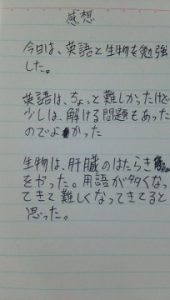 感想
今日は、英語と生物を勉強
した。
英語は、ちょっと難しかったけど
少しは、解ける問題もあった
のでよかった
生物は、肝臓のはたらき
をやった。用語が多くなっ
てきて難しくなってきてると
思った。